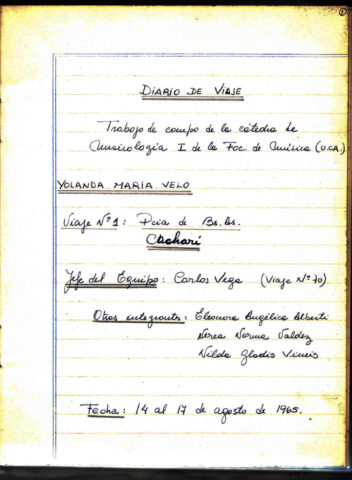 1
DIARIO DE VIAJE
Trabajo de campo de la cátedra de
Musicología I de la Fac. de Música (U.C.A.)
YOLANDA MARÍA VELO
Viaje Nº 1: Pcia de Bs. As.
Cachari
Jefe del Equipo: Carlos Vega (Viaje Nº 70)
Otros integrants: Eleonora Angélica Alberti
Nerea Norma Valdez
Nilda Gladis Vineis
Fecha: 14 al 17 de agosto de 1965.